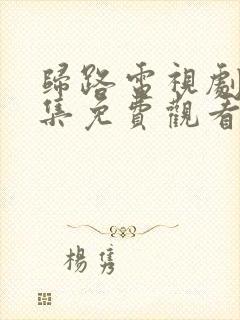 歸路電視劇
集免費觀看
楊雋